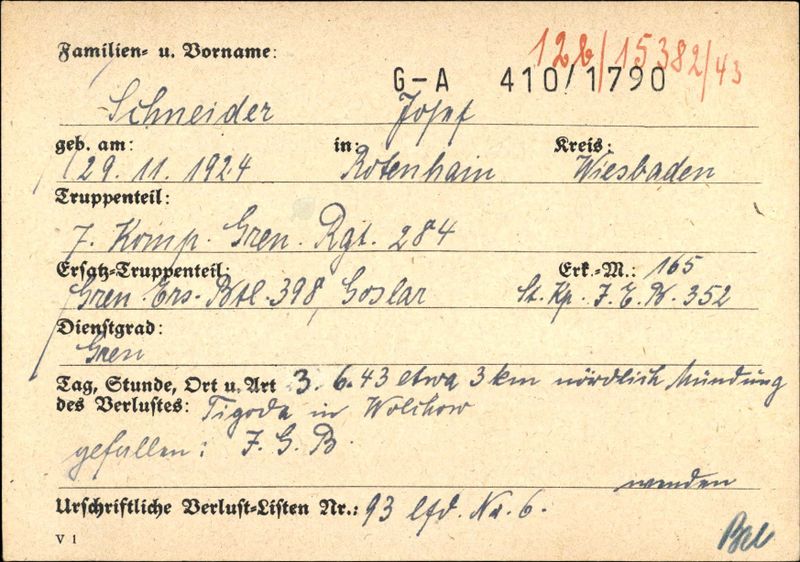 12b/15382/43
Familien- u. Vorname:
G-A 410/1790
Schneider Josef
geb. am: in: Kreis:
29. 11. 1924 Rotenhain Wiesbaden
Truppenteil:
7. Komp. Gren. Rgt. 284
Ersatz-Truppenteil: Erk.-M.: 165
Gren. Ers. Btl. 398, Goslar St. Kp. J. E. B. 352
Dienstgrad:
Gren
Tag, Stunde, Ort u. Art 3. 6. 43 etwa 3 km nördlich Mündung
des Verlustes: Tigoda in Wolchow
gefallen: J. G. B.
wenden
Urschriftliche Verlust-Listen Nr.: 93 lfd. Nr. 6.
V 1